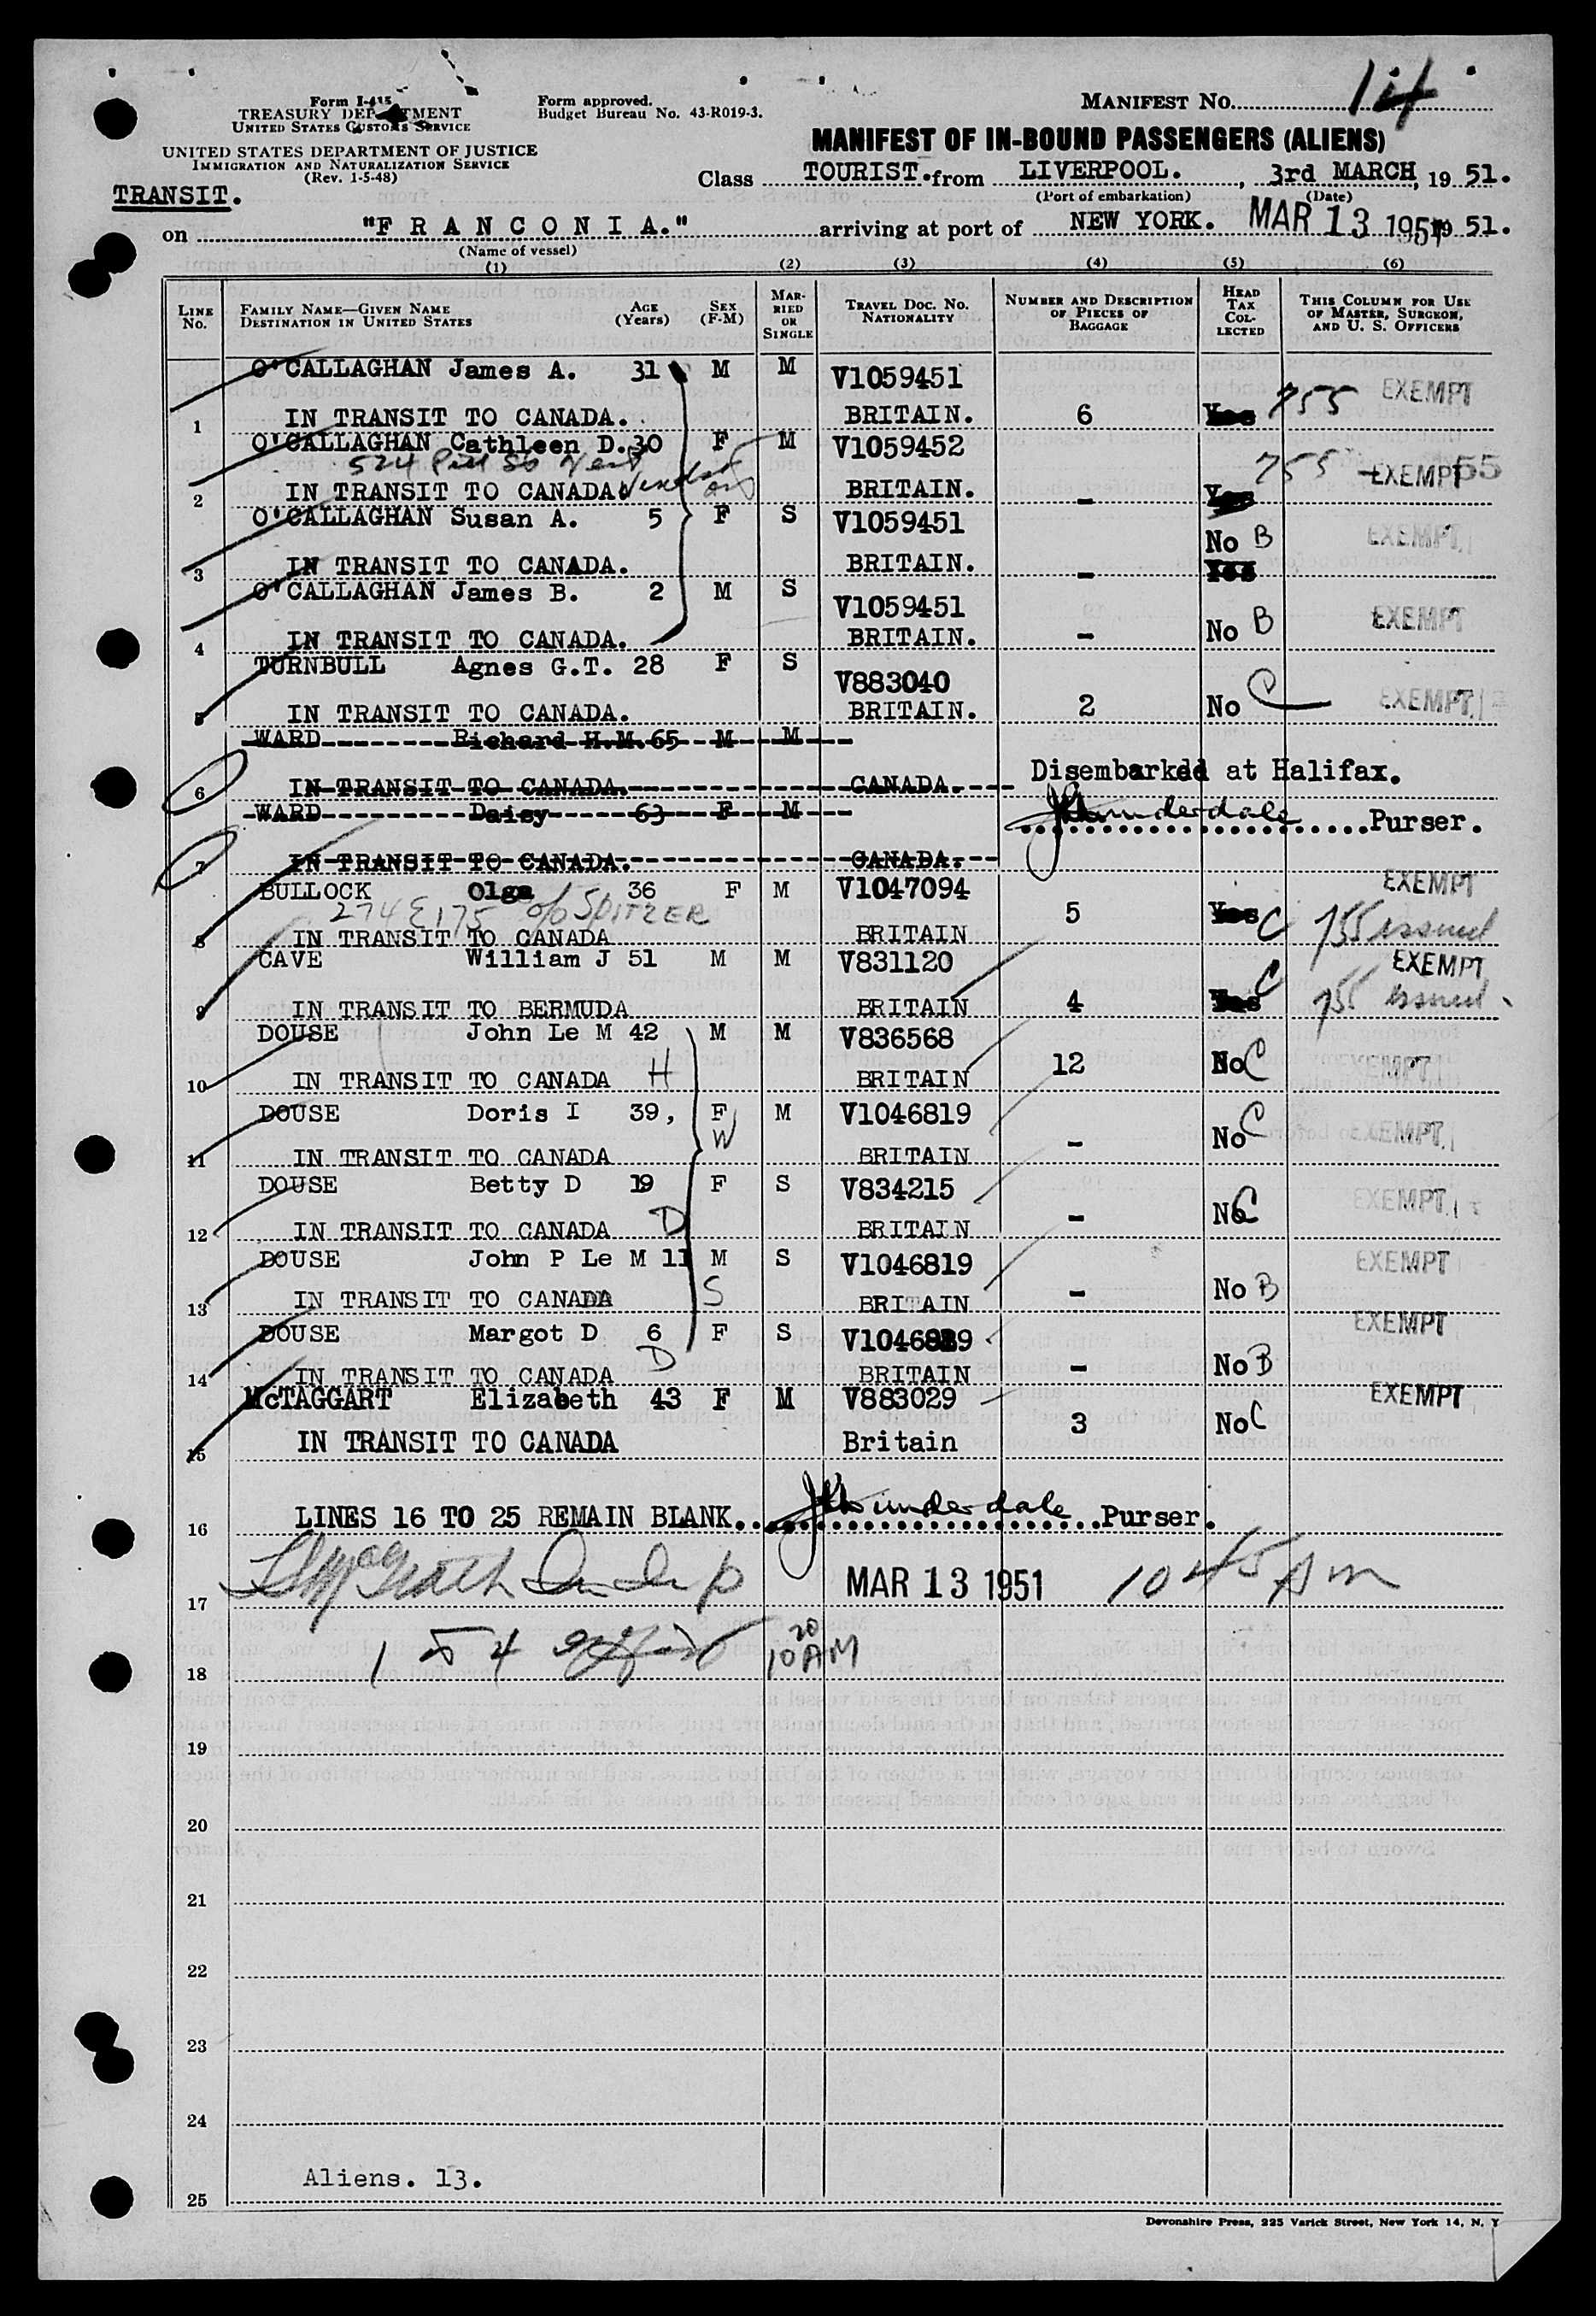 Form I-415
TREASURY DEPARTMENT
UNITED STATES CUSTOMS SERVICE
Form approved.
Budget Bureau No. 43-R019-3.
MANIFEST No. 14
UNITED STATES DEPARTMENT OF JUSTICE
IMMIGRATION AND NATURALIZATION SERVICE
(Rev. 1-5-48)
MANIFEST OF IN-BOUND PASSENGERS (ALIENS)
TRANSIT.
Class TOURIST. from LIVERPOOL. , 3rd MARCH, 19 51.
(Port of embarkation) (Date)
on "F R A N C O N I A." arriving at port of NEW YORK. MAR 13 1951 19 51.
(Name of vessel)
(1) (2) (3) (4) (5) (6)
LINE No. FAMILY NAME—GIVEN NAME DESTINATION IN UNITED STATES AGE (Years) SEX (F-M) MARRIED OR SINGLE TRAVEL DOC. No. NATIONALITY NUMBER AND DESCRIPTION OF PIECES OF BAGGAGE HEAD TAX COLLECTED THIS COLUMN FOR USE OF MASTER, SURGEON, AND U. S. OFFICERS
O'CALLAGHAN James A. 31 M M V1059451 EXEMPT
1 IN TRANSIT TO CANADA. BRITAIN. 6 Yes 755
O'CALLAGHAN Cathleen D. 30 F M V1059452
524 St West Windsor Ont 755 EXEMPT 55
2 IN TRANSIT TO CANADA. BRITAIN. - Yes
O'CALLAGHAN Susan A. 5 F S V1059451 No B EXEMPT
3 IN TRANSIT TO CANADA. BRITAIN. - Yes
O'CALLAGHAN James B. 2 M S V1059451 EXEMPT
4 IN TRANSIT TO CANADA. BRITAIN. - No B
TURNBULL Agnes G.T. 28 F S V883040 EXEMPT
5 IN TRANSIT TO CANADA. BRITAIN. 2 No C
WARD Richard H.M. 65 M M
6 IN TRANSIT TO CANADA. CANADA. Disembarked at Halifax.
WARD Daisy 63 F M Purser.
7 IN TRANSIT TO CANADA. CANADA.
BULLOCK Olga 36 F M V1047094 EXEMPT
274 E 175 c/o SPITZER 5 Yes C 755 issued
8 IN TRANSIT TO CANADA BRITAIN
CAVE William J 51 M M V831120 EXEMPT
9 IN TRANSIT TO BERMUDA BRITAIN 4 Yes C 755 issued
DOUSE John Le M 42 M M V836568
10 IN TRANSIT TO CANADA H BRITAIN 12 No C EXEMPT
DOUSE Doris I 39, F M V1046819
11 IN TRANSIT TO CANADA W BRITAIN - No C EXEMPT
DOUSE Betty D 19 F S V834215
12 IN TRANSIT TO CANADA D BRITAIN - No C EXEMPT
DOUSE John P Le M 11 M S V1046819 EXEMPT
13 IN TRANSIT TO CANADA S BRITAIN - No B
DOUSE Margot D 6 F S V1046819 EXEMPT
14 IN TRANSIT TO CANADA D BRITAIN - No B
McTAGGART Elizabeth 43 F M V883029 EXEMPT
15 IN TRANSIT TO CANADA Britain 3 No C
16 LINES 16 TO 25 REMAIN BLANK. Purser.
17 MAR 13 1951 10 45 AM
18 1 to 4 10 20 AM
19
20
21
22
23
24
Aliens. 13.
25
Devonshire Press, 225 Varick Street, New York 14, N. Y